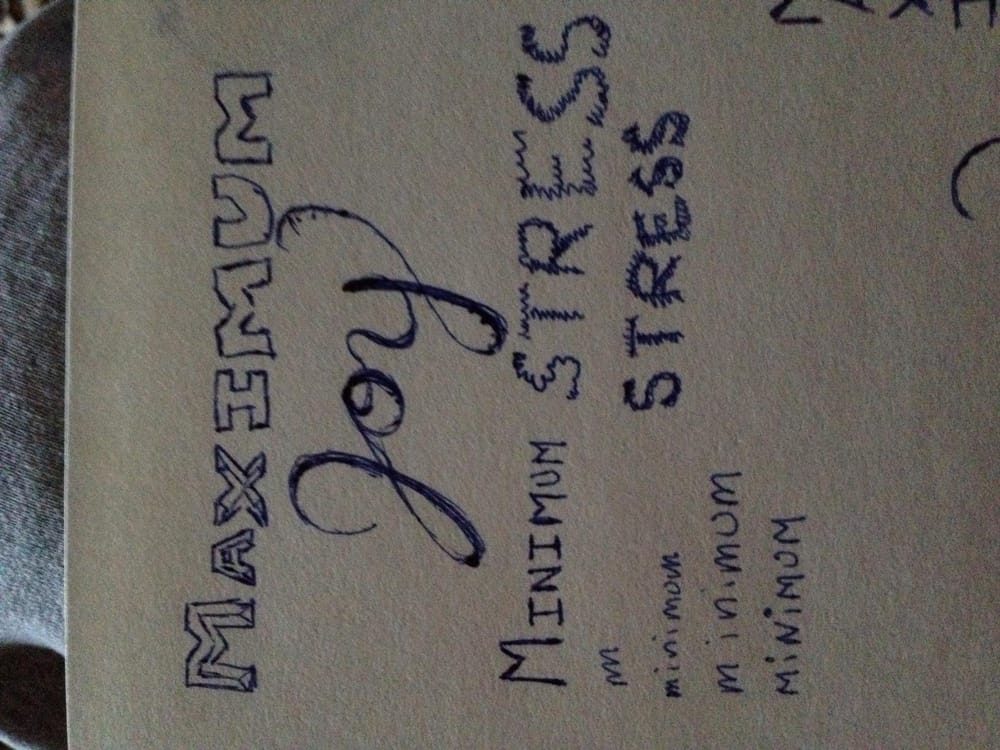 MAXIMUM
Joy
MINIMUM STRESS
m STRESS
minimum
minimUM
MiNiMUM